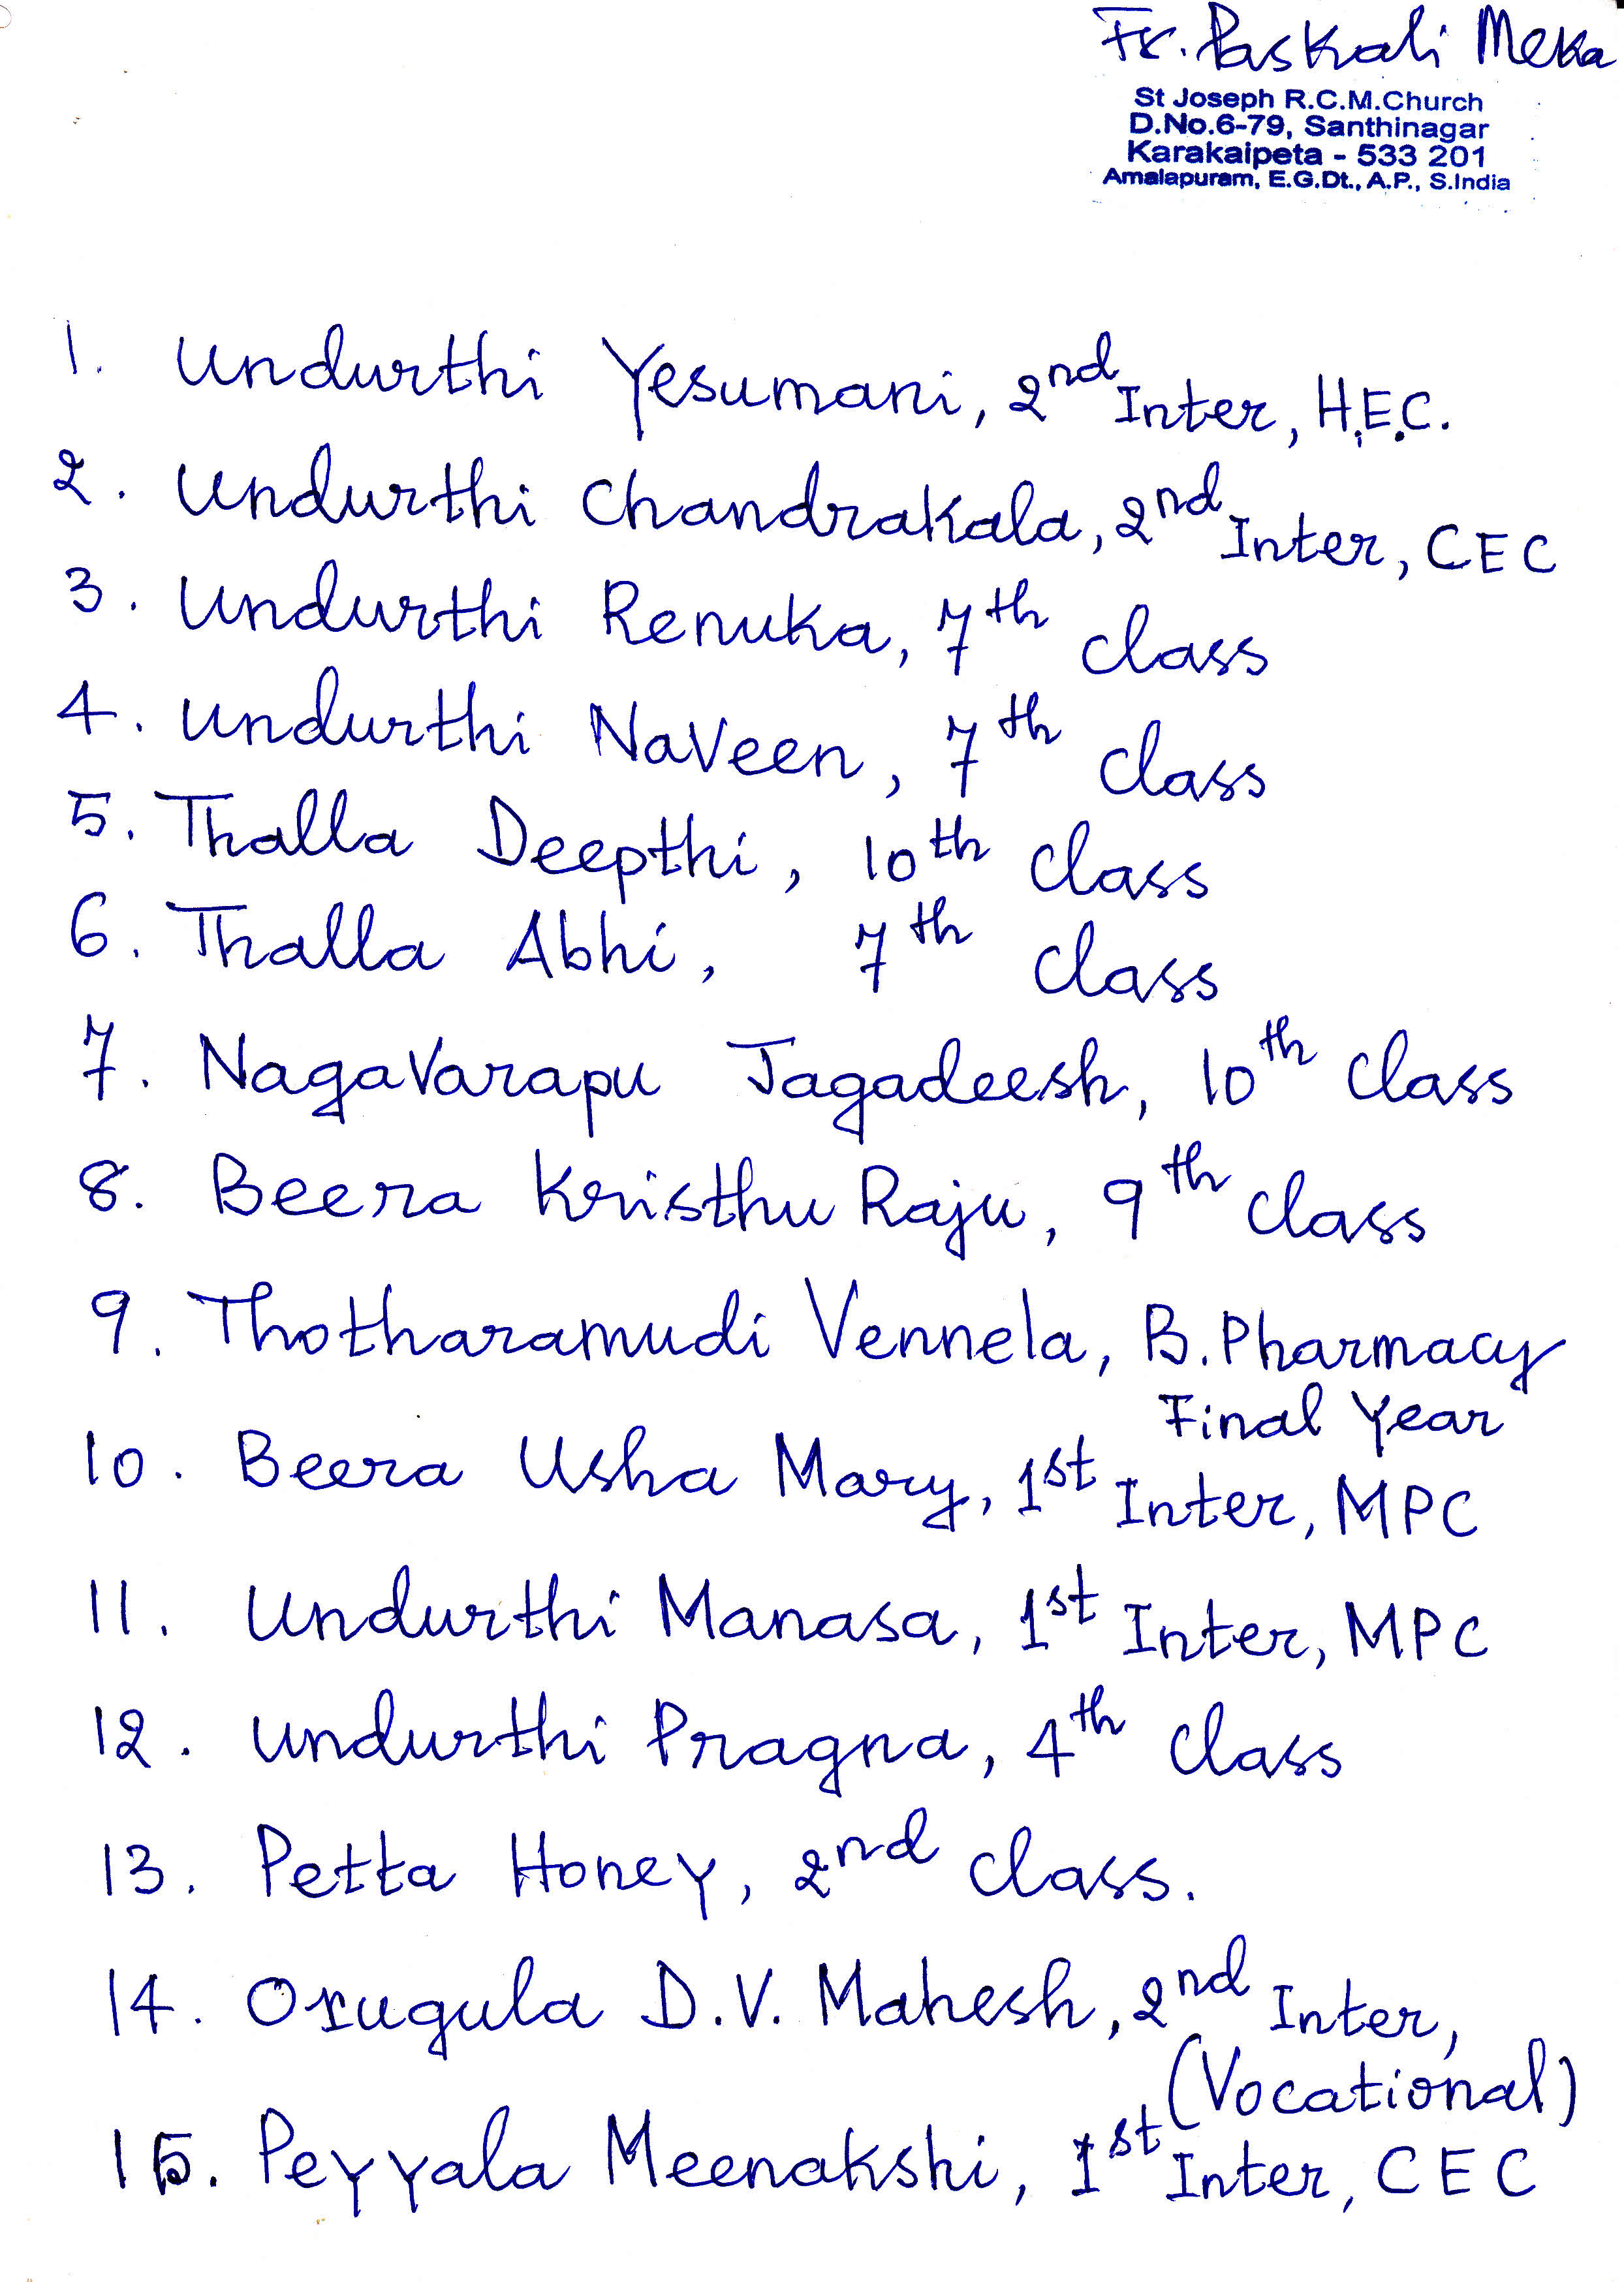 Fr. Paskali Meka
St Joseph R.C.M.Church
D.No.6-79, Santhinagar
Karakaipeta - 533 201
Amalapuram, E.G.Dt., A.P., S.India
1. Undurthi Yesumani, 2nd Inter, H.E.C.
2. Undurthi Chandrakala, 2nd Inter, CEC
3. Undurthi Renuka, 7th class
4. Undurthi Naveen, 7th class
5. Thalla Deepthi, 10th class
6. Thalla Abhi, 7th class
7. NagaVarapu Jagadeesh, 10th class
8. Beera Kristhu Raju, 9th class
9. Thotharamudi Vennela, B.Pharmacy
Final Year
10. Beera Usha Mary, 1st Inter, MPC
11. Undurthi Manasa, 1st Inter, MPC
12. Undurthi Pragna, 4th class
13. Petta Honey, 2nd class.
14. Orugula D.V. Mahesh, 2nd Inter,
(Vocational)
15. Peyyala Meenakshi, 1st Inter, CEC